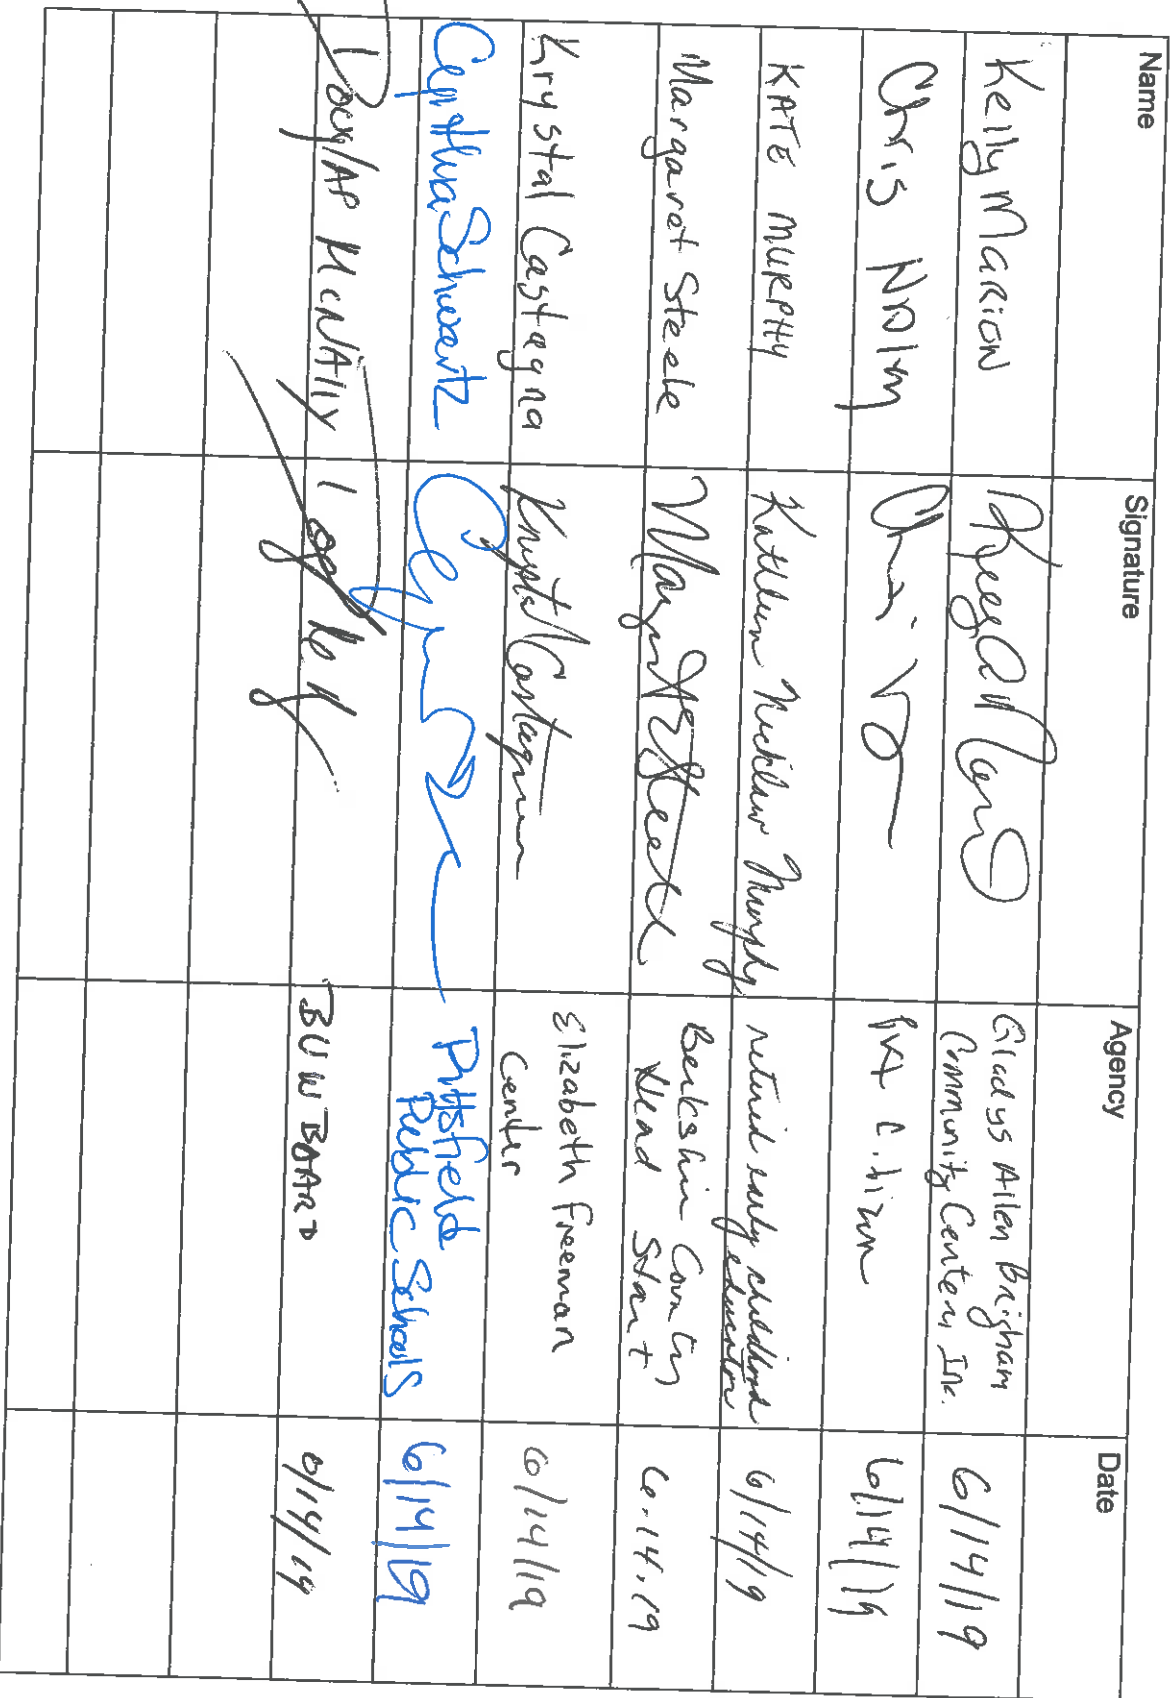 Name Signature Agency Date
Kelly Marion Gladys Allen Brigham Community Center, Inc. 6/14/19
Chris Chris Citizen 6/14/19
KATE MURPHY Kathleen Murphy retired early childhood educator 6/14/19
Margaret Steele Margaret Steele Berkshire County Head Start 6.14.19
Krystal Castagna Krystal Castagna Elizabeth Freeman Center 6/14/19
Cynthia Schwartz Pittsfield Public Schools 6/14/19
McNAlly BUW BOARD 6/14/19